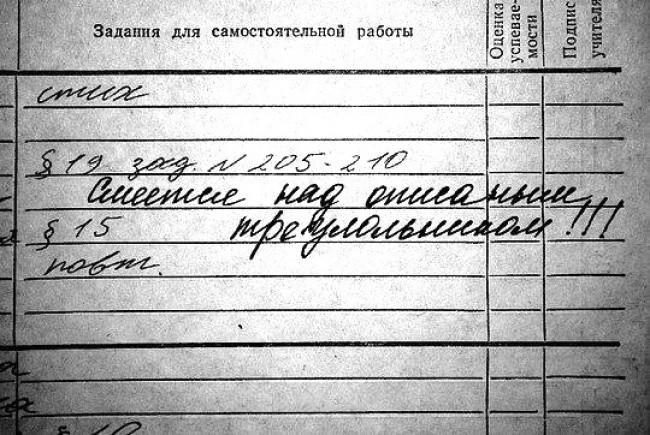 Задания для самостоятельной работы
Оценка успеваемости
Подпис учителя
стих
§ 19 зад. N 205-210
Смеется над описаным
§ 15 треугольником!!!
повт.
§ 10